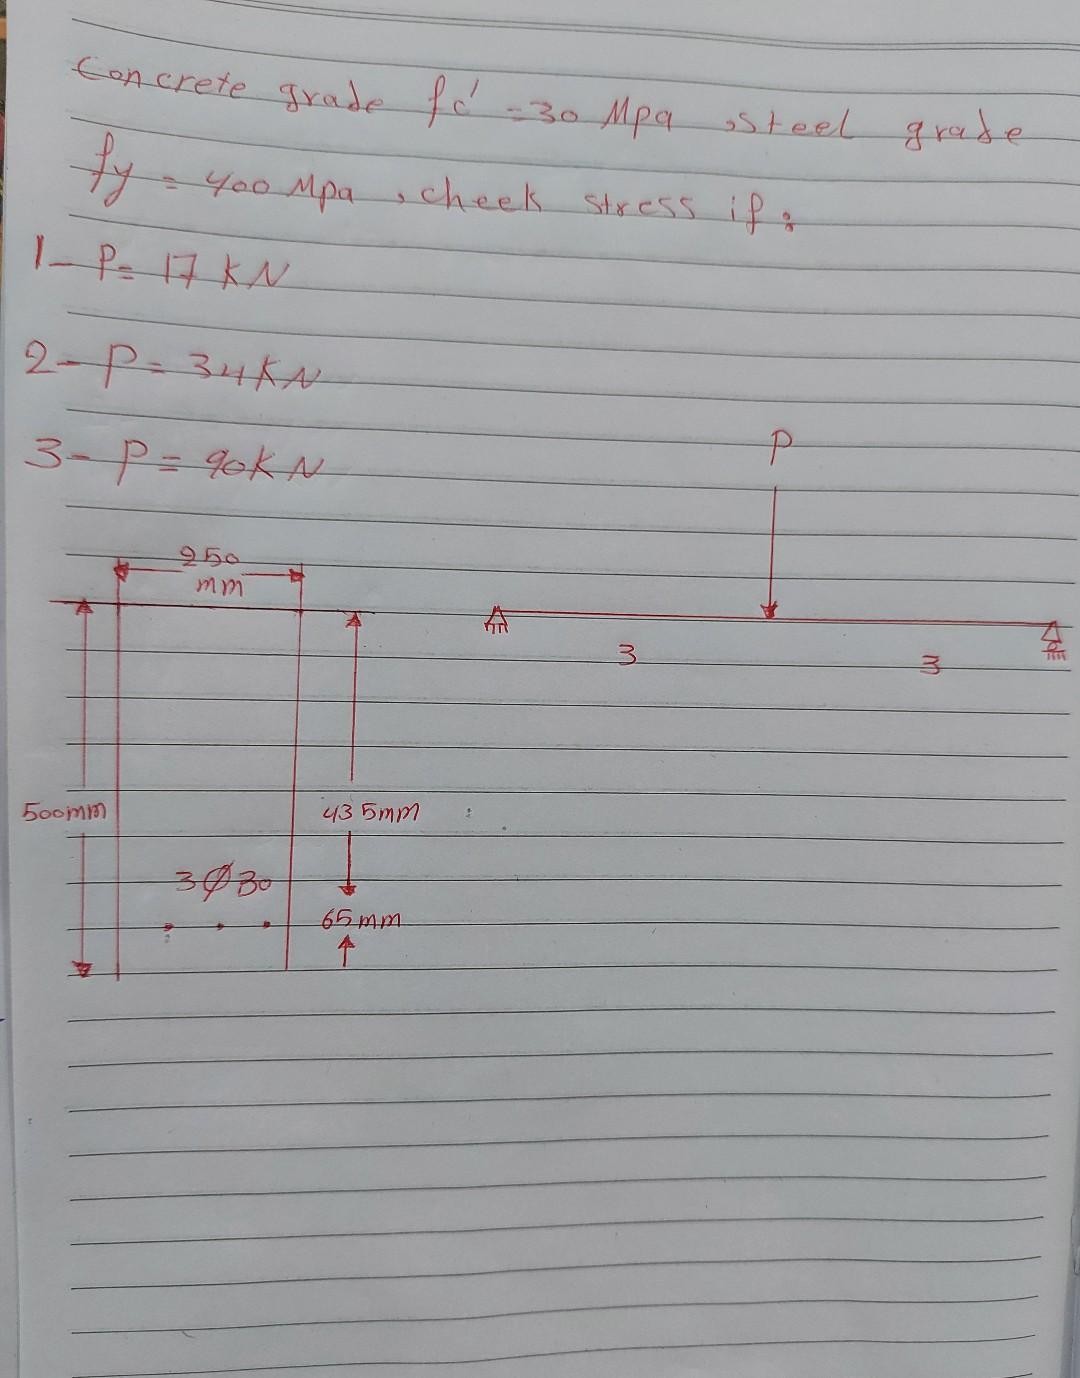 Concrete grade fc' = 30 Mpa , steel grade
fy = 400 Mpa , cheek stress if :
1- P = 17 KN
2- P = 34 KN
3- P = 90 KN
P
250
mm
3
3
500mm
435mm
3Ø30
65mm